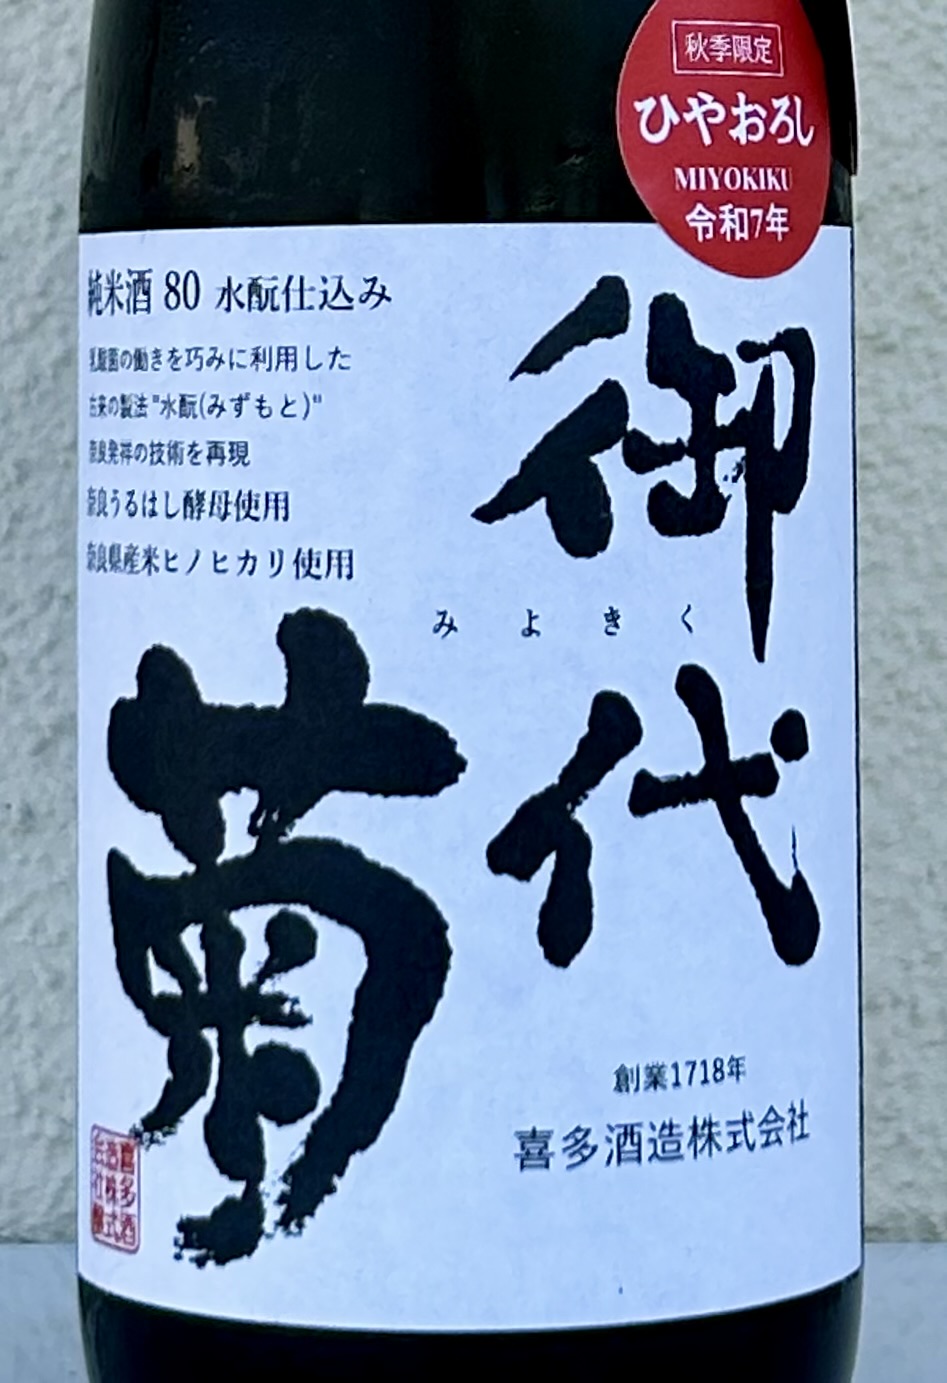 秋季限定
ひやおろし
MIYOKIKU
令和7年
純米酒 80 水酛仕込み
乳酸菌の働きを巧みに利用した
古来の製法"水酛(みずもと)"
奈良発祥の技術を再現
奈良うるはし酵母使用
奈良県産米ヒノヒカリ使用
御代
みよきく
菊
創業1718年
喜多酒造株式会社